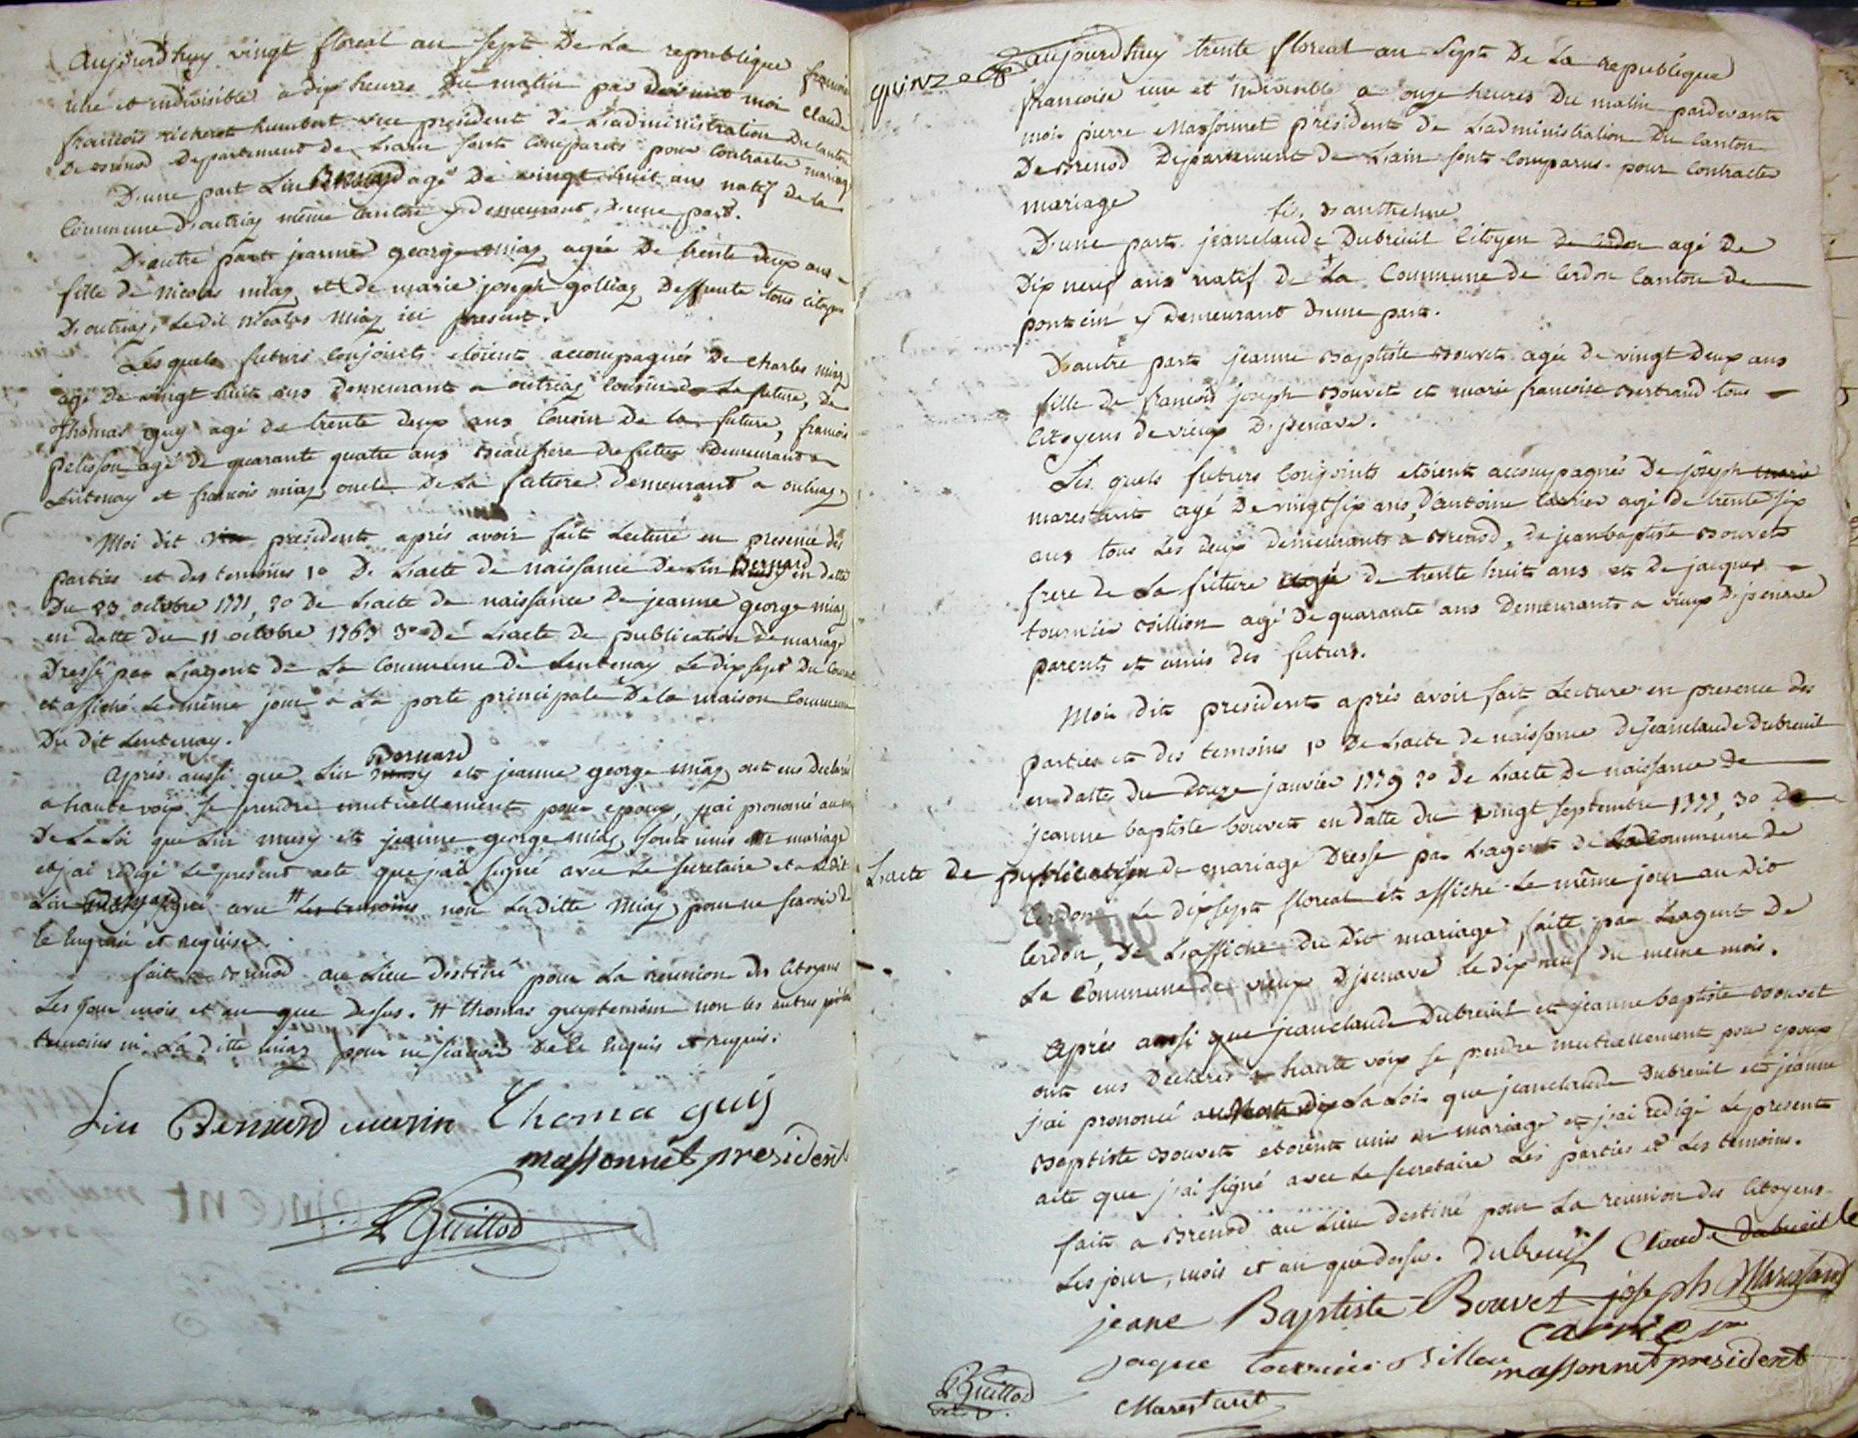 Aujourdhuy vingt floreal an sept De La republique francoise
une et indivisible a dix heures Du matin par devant moi Claude
francois humbert vice president de Ladministration Du Canton
De Brénod Departement de Lain sont Comparus pour Contracter mariage
D'une part Lin Bernard agé De vingt huit ans natif de la
Commune D'outriaz même Canton y demeurant d'une part.
D'autre part jeanne george miaz agée De trente deux ans
fille de Nicolas miaz et De marie joseph golliaz Deffunte tous citoyens
D'outriaz, Ledit Nicolas Miaz ici present.
Les quels futurs Conjoints etoient accompagnés De Charles miaz
agé De vingt huit ans Demeurant a outriaz Cousin de La future, De
Thomas guy agé de trente deux ans Cousin De la future, francois
pelisson agé De quarante quatre ans Beaufrere du futur Demeurant a
Lentenay et francois miaz oncle De La future Demeurant a outriaz.
Moi dit president aprés avoir fait Lecture en presence des
parties et des temoins 1o De Lacte de naissance De Lin Bernard en datte
Du 23 octobre 1771, 2o De Lacte de naissance De jeanne george miaz
en datte du 11 octobre 1765 3o De Lacte de publication De mariage
Dressé par Lagent De La Commune De Lentenay Le dix sept Du Courant
et affiché Le même jour a La porte principale De la maison Commune
Du dit Lentenay.
Aprés aussi que Lin Bernard et jeanne george miaz ont eus Declaré
a haute voix se prendre mutuellement pour epoux, j'ai prononcé au nom
De La Loi que Lin et jeanne george miaz sont unis en mariage
et j'ai redigé Le present acte que j'ai signé avec Le secretaire et Ledit
Lin avec # les temoins non Laditte Miaz pour ne scavoir de
le Enquise et requise.
fait a Brenod au Lieu Destiné pour La reunion Des Citoyens
Les jour mois et an que Dessus. # thomas guy temoin non les autres
temoins ni La Ditte miaz pour ne scavoir De Le Enquis et requis.
Lin Bernard Thoma guy
massonnet president
Guillod
quinze
aujourdhuy trente floreal an Sept De La republique
francoise une et indivisible a onze heures Du matin pardevant
moi pierre Massonnet président de Ladministration Du Canton
De Brenod Departement de Lain sont Comparus pour Contracter
mariage
fis d'anthelme
D'une part jeanclaude Dubreuil Citoyen de Cerdon agé De
Dix neuf ans natif de La Commune de Cerdon Canton De
pontcin y Demeurant D'une part.
D'autre part jeanne Baptiste Bouvet agée de vingt Deux ans
fille de francois joseph Bouvet et marie francoise Bertrand tous
Citoyens de vieux D'jzenave.
Les quels futurs Conjoints etoient accompagnés De joseph marie
marestant agé De vingt six ans, D'antoine Carrier agé de trente six
ans tous Les deux demeurants a Brenod, de jeanbaptiste Bouvet
frere de La future agé de trente huit ans et De jacques
tournier Billion agé De quarante ans Demeurants a vieux D'jzenave
parents et amis des futurs.
Moi dit president aprés avoir fait Lecture en presence des
parties et des temoins 1o De Lacte de naissance De Jeanclaude Dubreuil
en datte du Douze janvier 1779 2o De Lacte De naissance De
jeanne baptiste bouvet en datte du vingt septembre 1777, 3o De
Lacte de publication De mariage Dressé par Lagent de La Commune de
Cerdon Le dix sept floreal et affiché Le même jour au dit
Cerdon, De Laffiche Du Dit mariage, faite par Lagent De
La Commune de vieux D'jzenave Le dix neuf du meme mois.
Aprés aussi que jeanclaude Dubreuil et jeannebaptiste Bouvet
ont eus Declarés a haute voix se prendre mutuellement pour epoux
j'ai prononcé La Loi que jeanclaude Dubreuil et jeanne
Baptiste Bouvet etoient unis en mariage et j'ai redigé Le present
acte que j'ai signé avec Le secretaire Les parties et Les temoins.
fait a Brenod au Lieu destiné pour La reunion des Citoyens
Les jour, mois et an que dessus. Dubreuil Claude Dubreuil
jeane Baptiste Bouvet joseph Marestant
Carrier
jaque tournier Billion massonnet president
Guillod
Marestant